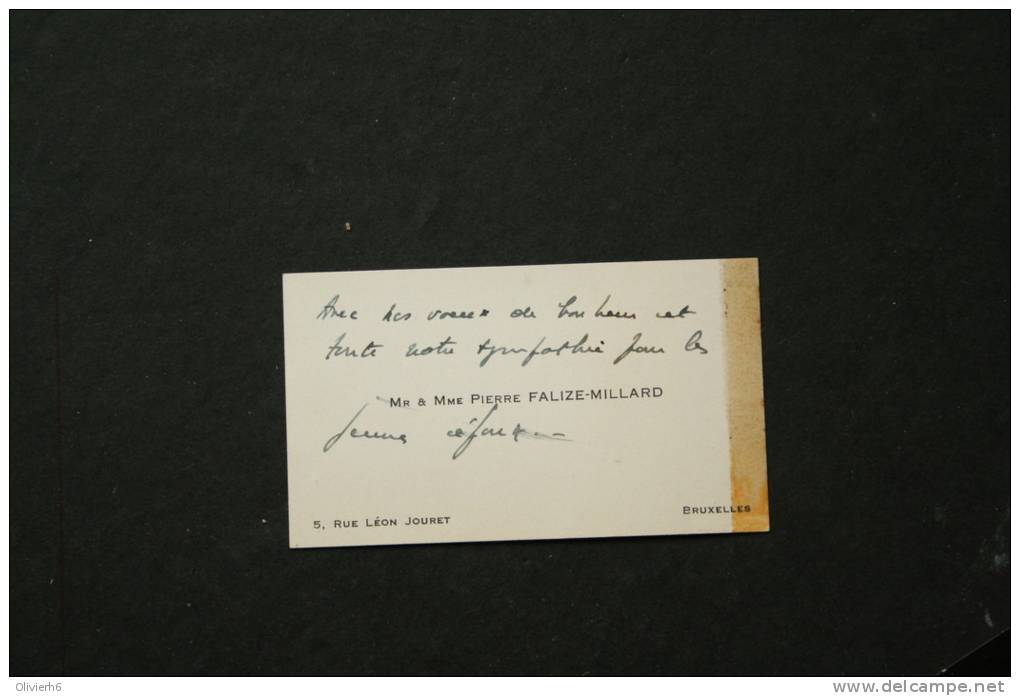 Avec nos voeux de bonheur et
toute notre sympathie pour les
MR & MME PIERRE FALIZE-MILLARD
jeunes époux
5, RUE LÉON JOURET
BRUXELLES
Olivierh6
www.delcampe.net